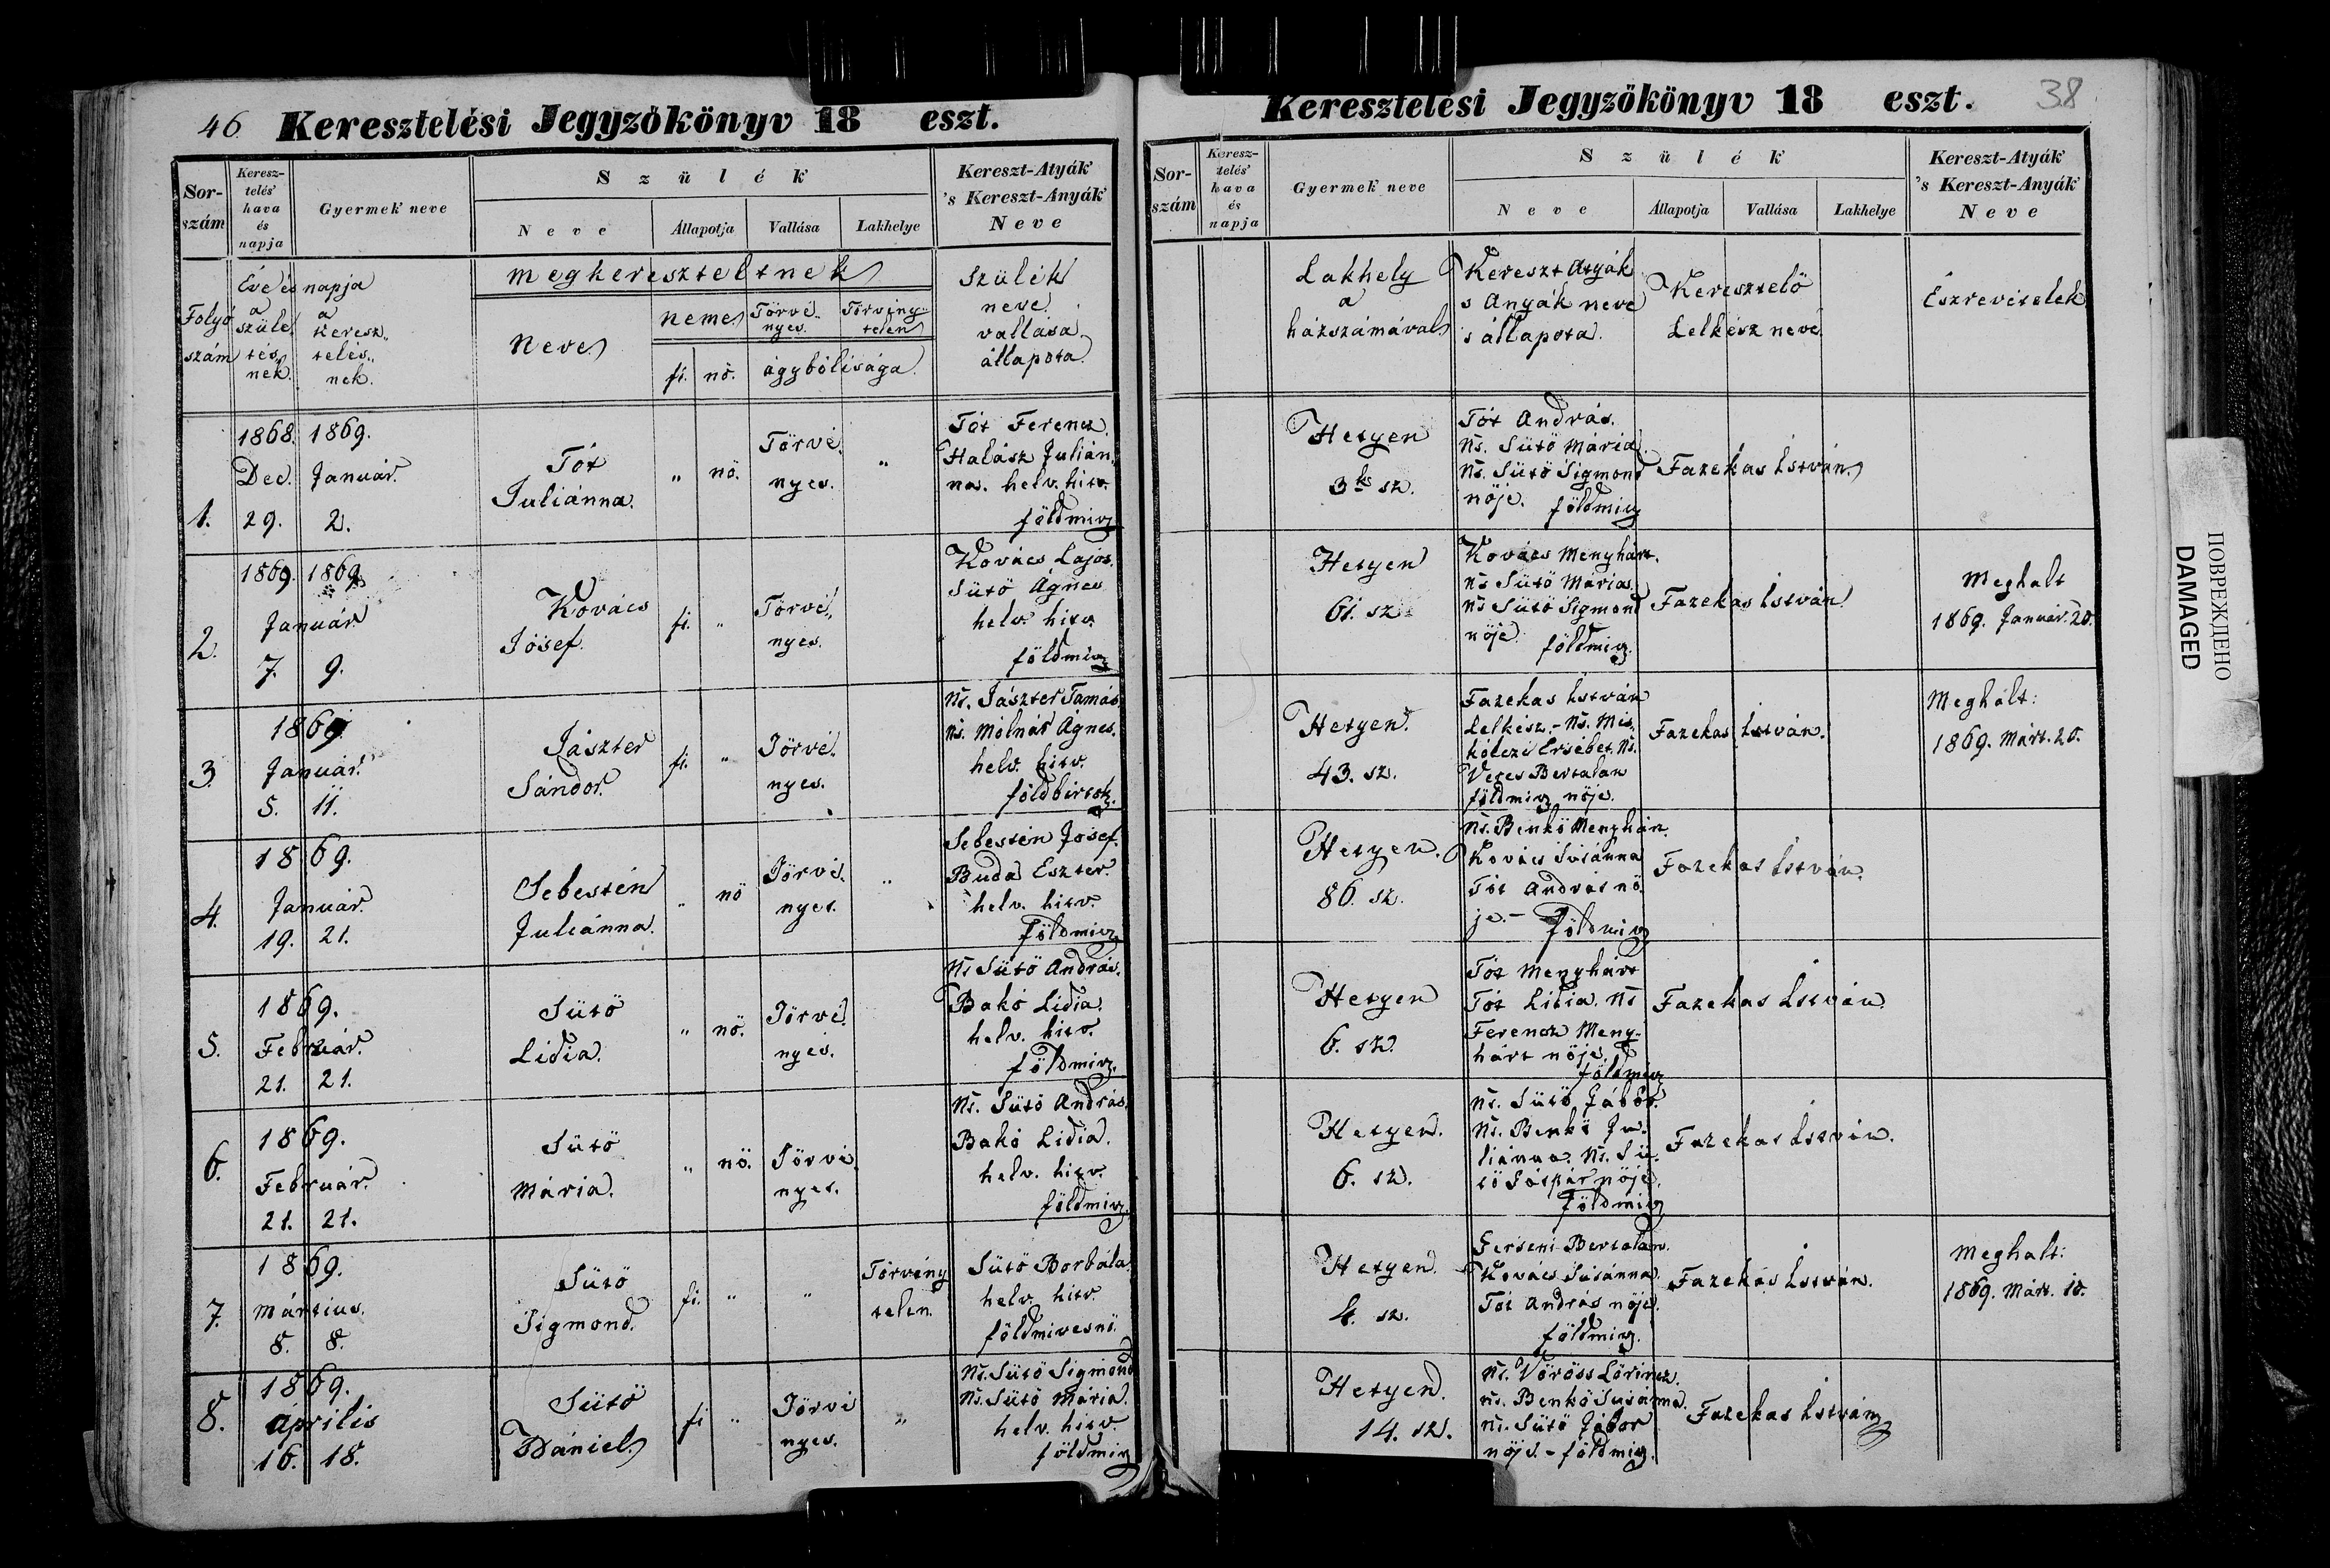 46 Keresztelési Jegyzőkönyv 18 eszt.
Sor-szám
Keresz-telés' hava és napja
Gyermek' neve
Szülék
Neve
Állapotja
Vallása
Lakhelye
Kereszt-Atyák 's Kereszt-Anyák Neve
Folyó szám
Évé és napja
a szüle tés nek.
a keresz telés nek.
megkereszteltnek
neve
neme
fi. nö.
Törvé nyes.
Törvény telen
ágybólisága
szülék neve vallása állapota.
1.
1868. 1869.
Dec. Január.
29. 2.
Tót
Juliánna.
„ nö.
Törvé
nyes.
„
Tót Ferencz
Halász Julián
na. helv. hitv.
földmiv
2.
1869. 1869
Január
7. 9.
Kovács
Jósef.
fi. „
Törvé
nyes.
Kovács Lajos.
Sütö Ágnes
helv. hitv.
földmiv
3.
1869
Január.
5. 11.
Jászter
Sándor.
fi. „
Törvé
nyes.
Ns. Jászter Tamás
Ns. Mólnár Ágnes.
helv. hitv.
földbirtok.
4.
1869.
Január.
19. 21.
Sebestén
Juliánna.
„ nö
Törvé
nyes.
„
Sebestén Jósef.
Buda Eszter.
helv. hitv.
földmiv
5.
1869.
Február.
21. 21.
Sütö
Lidia.
„ nö.
Törvé
nyes.
Ns Sütö András.
Bakó Lidia.
helv. hitv.
földmiv.
6.
1869.
Február.
21. 21.
Sütö
Mária.
„ nö.
Törvé
nyes.
Ns. Sütö András.
Bakó Lidia.
helv. hitv.
földmiv.
7.
1869.
Mártius.
8. 8.
Sütö
Sigmond.
fi. „ „
Törvény
telen.
Sütö Borbála
helv. hitv.
földmivesnö.
8.
1869.
Április
16. 18.
Sütö
Dániel
fi „
Törvé
nyes.
„
Ns. Sütö Sigmond
Ns. Sütö Mária.
helv. hitv.
földmiv
Keresztelési Jegyzőkönyv 18 eszt. 38
Sor-szám
Keresz-telés' hava és napja
Gyermek neve
Szülék
Neve
Állapotja
Vallása
Lakhelye
Kereszt-Atyák 's Kereszt-Anyák Neve
Lakhely
a
házszámával
Kereszt Atyák
s Anyák neve
s állapota.
Keresztelö
Lelkész neve
Észrevételek
Hetyen
3k sz.
Tót András.
Ns. Sütö Mária
Ns. Sütö Sigmond
nöje. földmiv
Fazekas István
Hetyen
61. sz
Kovács Menyhárt.
Ns Sütö Mária
Ns Sütö Sigmond
nöje földmiv.
Fazekas István
Meghalt
1869. Január. 20.
Hetyen.
43. sz.
Fazekas István
Lelkész. - Ns. Mis
kólczi Ersébet. Ns.
Veres Bertalan
földmiv nöje.
Fazekas István.
Meghalt:
1869. Márt. 20.
Hetyen.
86. sz.
Ns. Benkö Menyhár.
Kovács Susánna
Tót András nö
je. - földmiv
Fazekas István.
Hetyen
6. sz.
Tót Menyhárt
Tót Lidia. Ns
Ferencz Meny-
hárt nöje.
földmiv
Fazekas István
Hetyen.
6. sz.
Ns. Sütö Gábor.
Ns. Benkö Ju
liánna. Ns. Sü
tö Gáspár nöje.
földmiv
Fazekas István.
Hetyen
4. sz.
Gerseni Bertalan.
Kovács Susánna.
Tót András nöje.
földmiv.
Fazekas István.
Meghalt:
1869. Márt. 10.
Hetyen.
14. sz.
Ns. Vöröss Lörincz.
Ns. Benkö Susánna.
Ns. Sütö Gábor
nöje. - földmiv.
Fazekas István
ПОВРЕЖДЕНО
DAMAGED